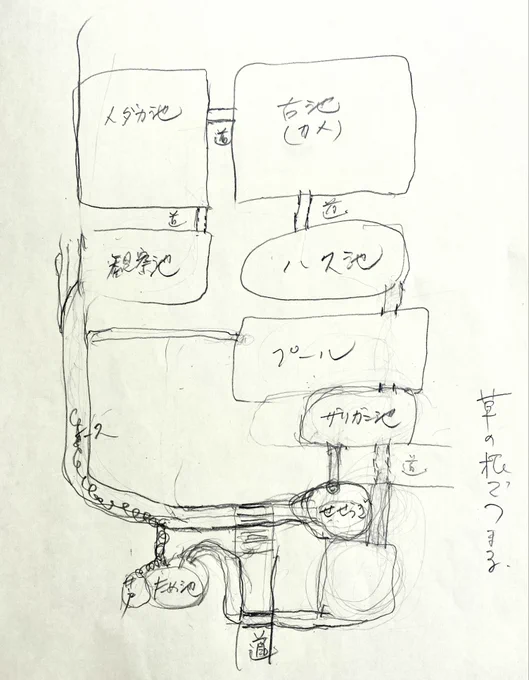 メダカ池
古池
(カメ)
道
道
道
観察池
ハス池
プール
ザリガニ池
道
ため池
道
草の根でつまる。